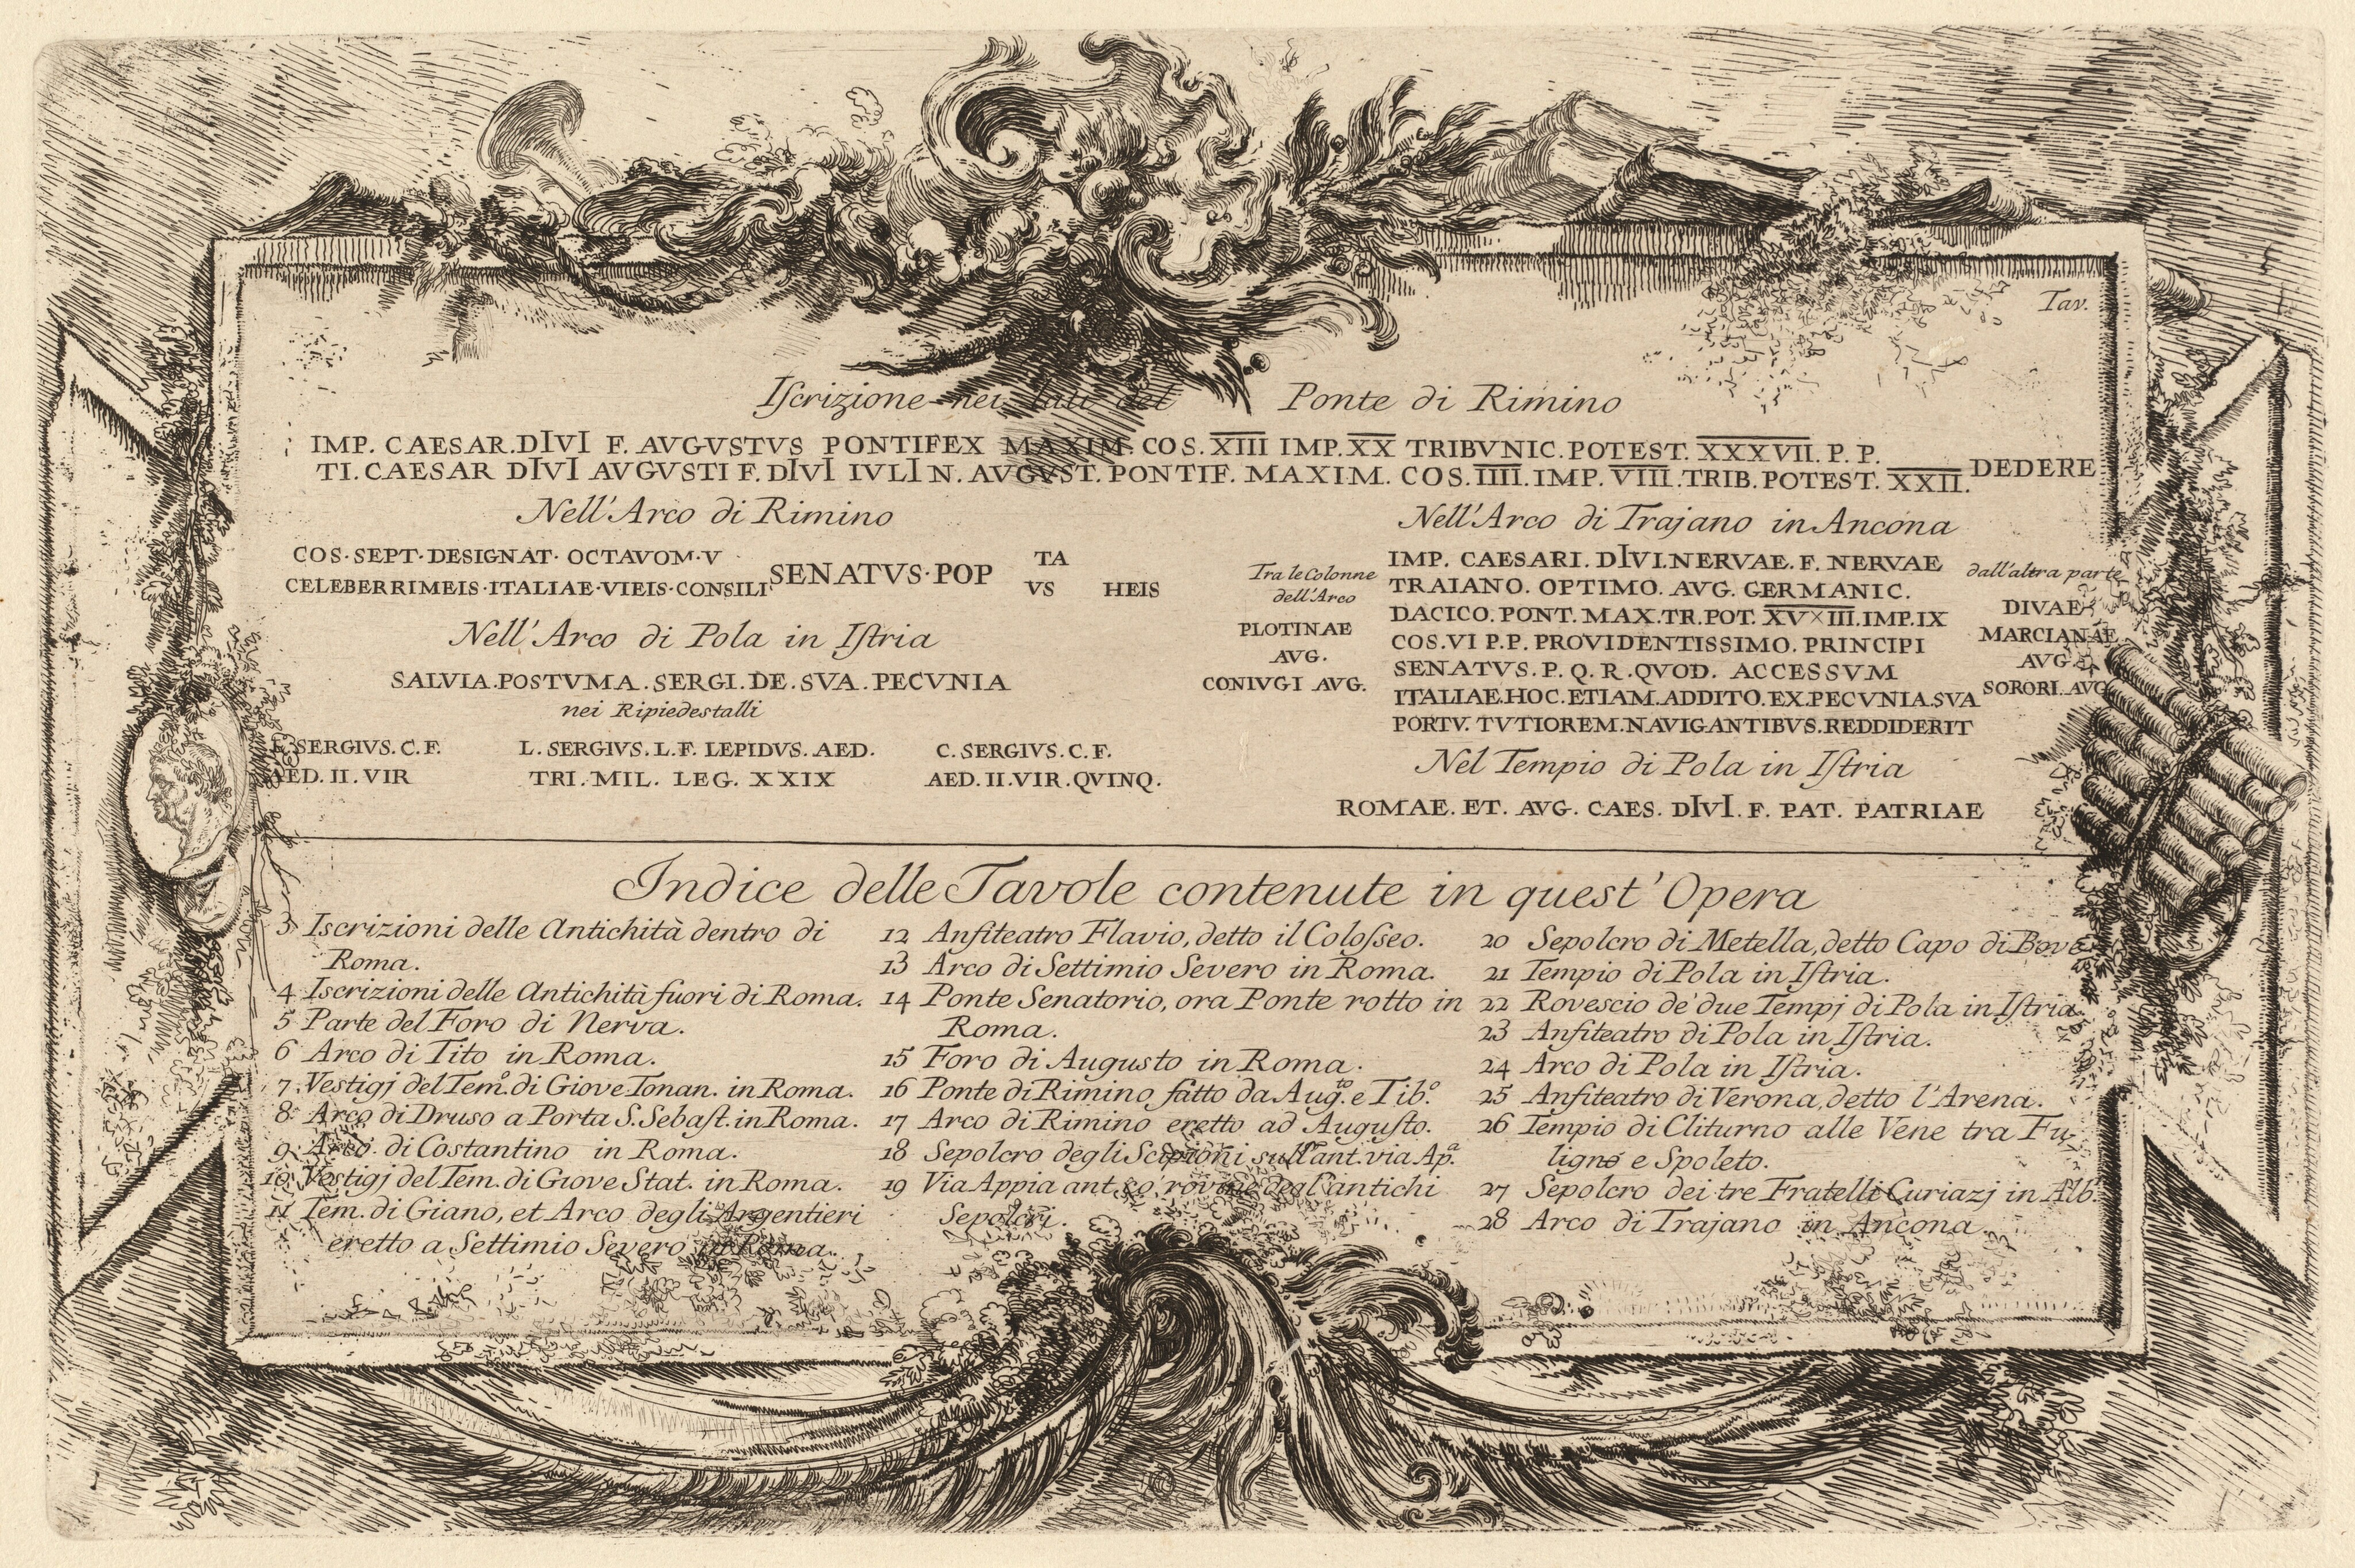 Tav.
Iſcrizione nei lati del Ponte di Rimino
IMP. CAESAR. DIVI F. AVGVSTVS PONTIFEX MAXIM. COS. XIII IMP. XX TRIBVNIC. POTEST. XXXVII. P. P.
TI. CAESAR DIVI AVGVSTI F. DIVI IVLI N. AVGVST. PONTIF. MAXIM. COS. IIII. IMP. VIII. TRIB. POTEST. XXII. DEDERE
Nell'Arco di Rimino
COS·SEPT·DESIGNAT· OCTAVOM·V
CELEBERRIMEIS·ITALIAE·VIEIS·CONSILI
SENATVS·POP
TA
VS HEIS
Nell'Arco di Pola in Iſtria
SALVIA.POSTVMA.SERGI.DE.SVA.PECVNIA
nei Ripiedestalli
L. SERGIVS. C. F.
AED. II. VIR
L. SERGIVS. L. F. LEPIDVS. AED.
TRI. MIL. LEG. XXIX
C. SERGIVS. C. F.
AED. II. VIR. QVINQ.
Nell'Arco di Trajano in Ancona
Tra le Colonne
dell'Arco
PLOTINAE
AVG.
CONIVGI AVG.
IMP. CAESARI. DIVI. NERVAE. F. NERVAE
TRAIANO. OPTIMO. AVG. GERMANIC.
DACICO. PONT. MAX. TR. POT. XV×III. IMP. IX
COS. VI P. P. PROVIDENTISSIMO. PRINCIPI
SENATVS. P. Q. R. QVOD. ACCESSVM
ITALIAE. HOC. ETIAM. ADDITO. EX. PECVNIA. SVA
PORTV. TVTIOREM. NAVIGANTIBVS. REDDIDERIT
dall'altra parte
DIVAE
MARCIANAE
AVG.
SORORI. AVG
Nel Tempio di Pola in Iſtria
ROMAE. ET. AVG. CAES. DIVI. F. PAT. PATRIAE
Indice delle Tavole contenute in quest'Opera
3 Iscrizioni delle Antichità dentro di
Roma.
4 Iscrizioni delle Antichità fuori di Roma.
5 Parte del Foro di Nerva.
6 Arco di Tito in Roma.
7 Vestigj del Tem.º di Giove Tonan. in Roma.
8 Arco di Druso a Porta S. Sebaſt. in Roma.
9 Arco di Costantino in Roma.
10 Vestigj del Tem. di Giove Stat. in Roma.
11 Tem. di Giano, et Arco degli Argentieri
eretto a Settimio Severo in Roma.
12 Anfiteatro Flavio, detto il Coloſseo.
13 Arco di Settimio Severo in Roma.
14 Ponte Senatorio, ora Ponte rotto in
Roma.
15 Foro di Augusto in Roma.
16 Ponte di Rimino fatto da Aug.to e Tib.º
17 Arco di Rimino eretto ad Auguſto.
18 Sepolcro degli Scipioni sull'ant. via Ap.a
19 Via Appia ant. co' rovine degl'antichi
Sepolcri.
20 Sepolcro di Metella, detto Capo di Bove
21 Tempio di Pola in Iſtria.
22 Rovescio de' due Tempj di Pola in Iſtria.
23 Anfiteatro di Pola in Iſtria.
24 Arco di Pola in Iſtria.
25 Anfiteatro di Verona, detto l'Arena.
26 Tempio di Cliturno alle Vene tra Fu-
ligno e Spoleto.
27 Sepolcro dei tre Fratelli Curiazj in Alb.
28 Arco di Trajano in Ancona